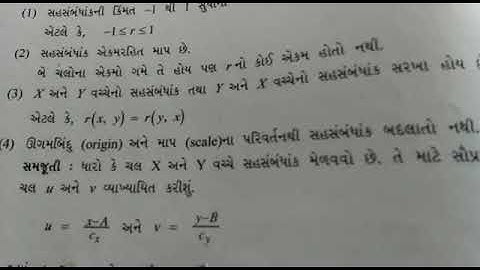 (1) સહસંબંધાંકની કિંમત –1 થી 1 સુધીની
એટલે કે, –1 ≤ r ≤ 1
(2) સહસંબંધાંક એકમરહિત માપ છે.
બે ચલોના એકમો ગમે તે હોય પણ r નો કોઈ એકમ હોતો નથી.
(3) X અને Y વચ્ચેનો સહસંબંધાંક તથા Y અને X વચ્ચેનો સહસંબંધાંક સરખા હોય છે
એટલે કે, r(x, y) = r(y, x)
(4) ઊગમબિંદુ (origin) અને માપ (scale)ના પરિવર્તનથી સહસંબંધાંક બદલાતો નથી.
સમજૂતી : ધારો કે ચલ X અને Y વચ્ચે સહસંબંધાંક મેળવવો છે. તે માટે સૌપ્ર
ચલ u અને v વ્યાખ્યાયિત કરીશું.
u = x–A / cx અને v = y–B / cy